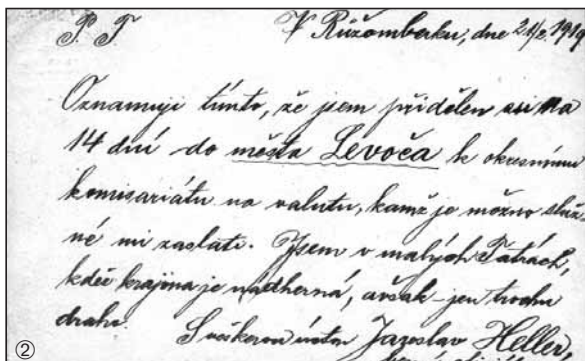 P. T. V Růžomberku, dne 21/2. 1919
Oznamuji tímto, že jsem přidělen asi na
14 dní do města Levoča k okresnímu
komisariátu na valutu, kamž je možno služ-
né mi zaslati. Jsem v malých Tatrách,
kdež krajina je nádherná, avšak – jen trochu
draho.
S veškerou úctou Jaroslav Heller
②